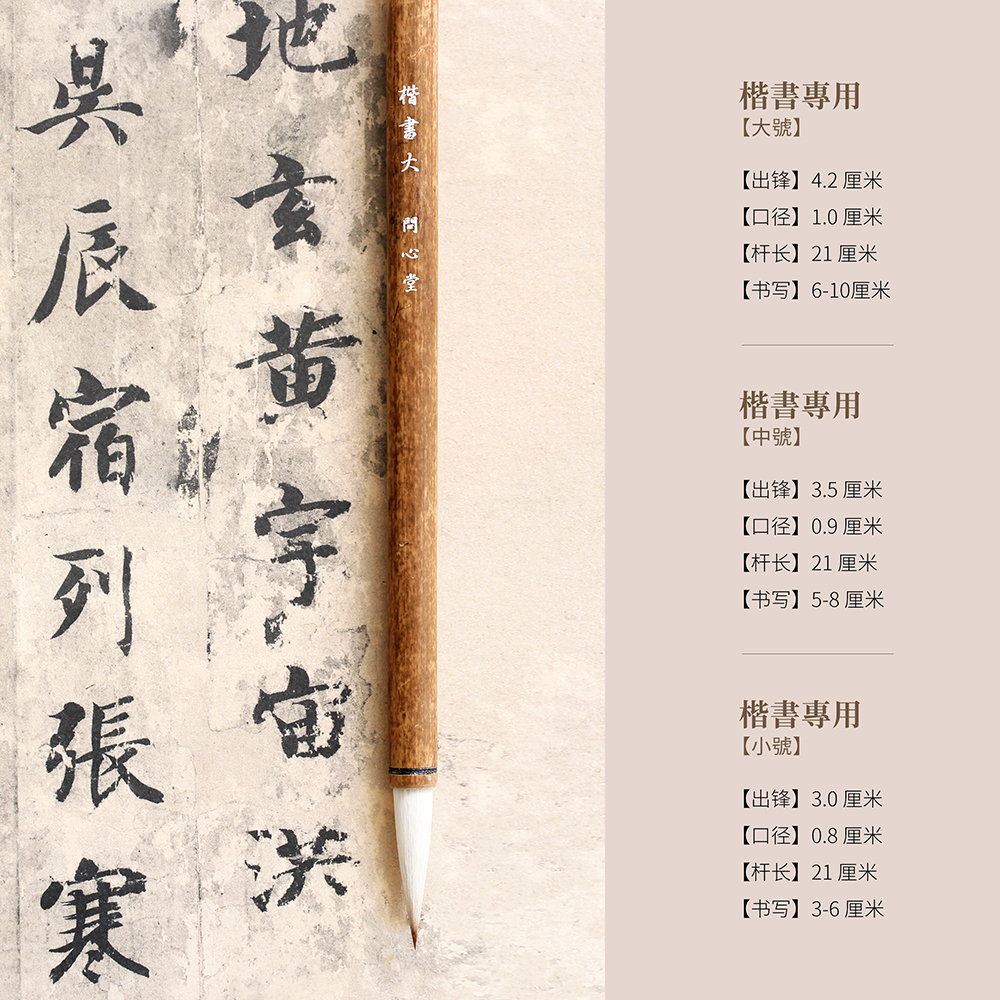 地玄黄宇宙洪
昃辰宿列張寒
楷書大 問心堂
楷書專用
【大號】
【出锋】4.2 厘米
【口径】1.0 厘米
【杆长】21 厘米
【书写】6-10厘米
楷書專用
【中號】
【出锋】3.5 厘米
【口径】0.9 厘米
【杆长】21 厘米
【书写】5-8 厘米
楷書專用
【小號】
【出锋】3.0 厘米
【口径】0.8 厘米
【杆长】21 厘米
【书写】3-6 厘米